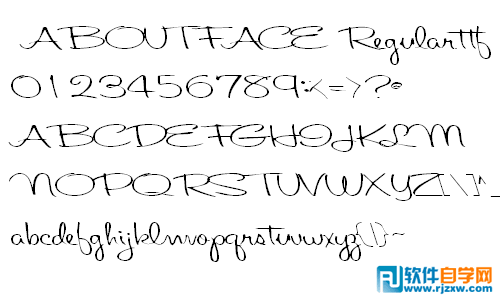 ABOUTFACE Regular.ttf
0123456789:;<=>?@
ABCDEFGHIJKLM
NOPQRSTUVWXYZ[\]^_
abcdefghijklmnopqrstuvwxyz{|}~
软件自学网
www.rjzxw.com